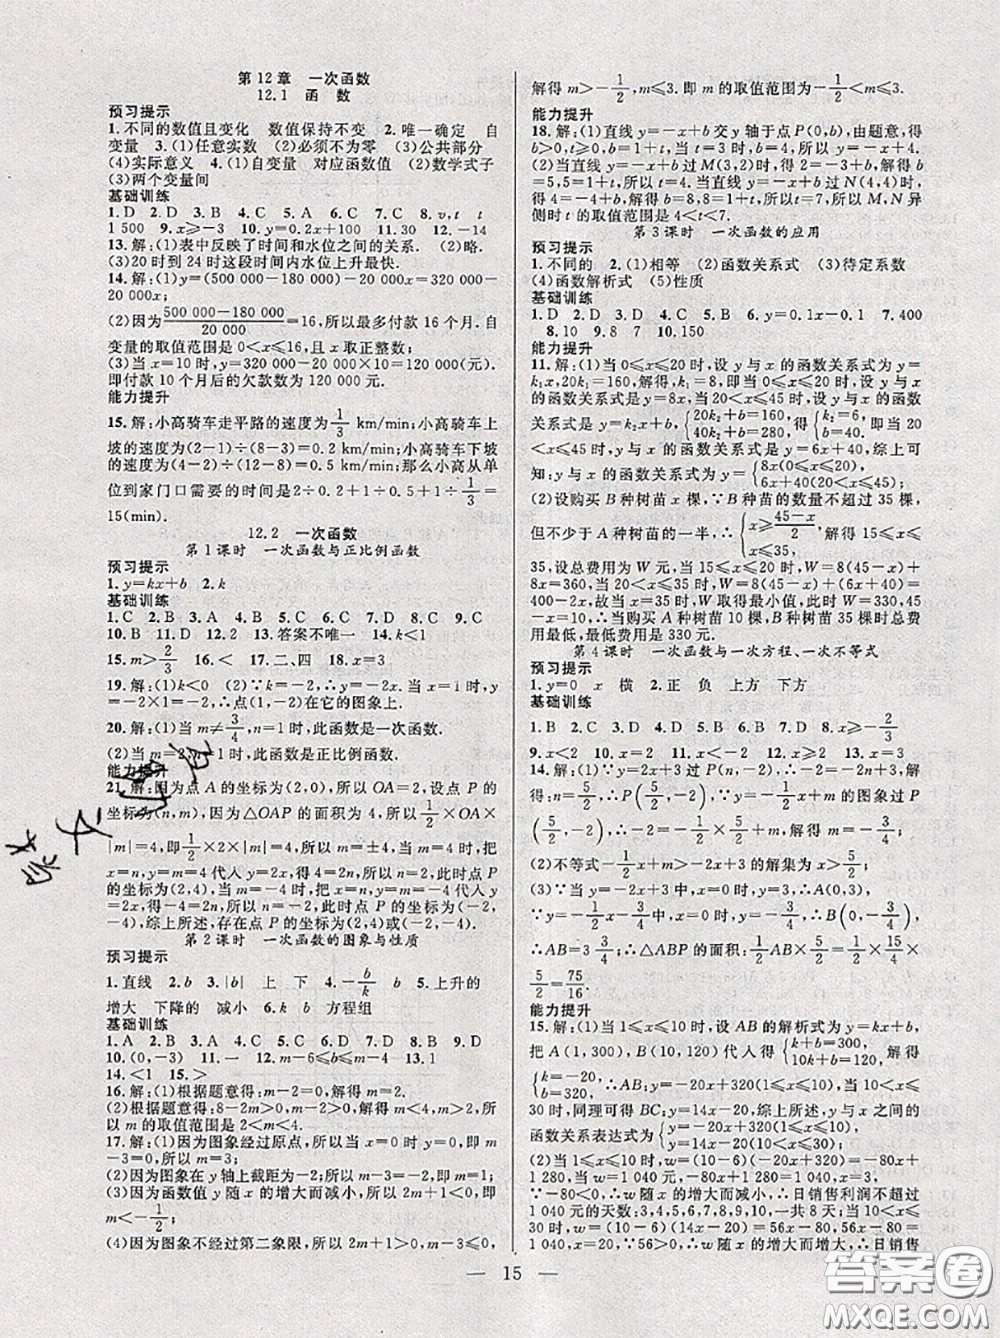 第12章 一次函数
12.1 函 数
预习提示
1.不同的数值且变化 数值保持不变 2.唯一确定 自
变量 3.(1)任意实数 (2)必须不为零 (3)公共部分
(4)实际意义 4.(1)自变量 对应函数值 (2)数学式子
(3)两个变量间
基础训练
1.D 2.D 3.B 4.C 5.A 6.C 7.D 8.v,t t
1 500 9.x>-3 10.y=0.3x+6 11.30 12.-14
13.解:(1)表中反映了时间和水位之间的关系. (2)略.
(3)20时到24时这段时间内水位上升最快.
14.解:(1)y=(500 000-180 000)-20 000x=320 000-20 000x;
(2)因为(500 000-180 000)/20 000=16,所以最多付款16个月.自
变量的取值范围是0<x≤16,且x取正整数;
(3)当x=10时,y=320 000-20 000×10=120 000(元).
即付款10个月后的欠款数为120 000元.
能力提升
15.解:小高骑车走平路的速度为1/3 km/min;小高骑车上
坡的速度为(2-1)÷(8-3)=0.2 km/min;小高骑车下坡
的速度为(4-2)÷(12-8)=0.5 km/min;那么小高从单
位到家门口需要的时间为2÷0.2+1÷0.5+1÷1/3=
15(min).
12.2 一次函数
第1课时 一次函数与正比例函数
预习提示
1.y=kx+b 2.k
基础训练
1.C 2.B 3.A 4.B 5.C 6.C 7.D 8.C 9.D
10.B 11.D 12.2 13.答案不唯一 14.k<1
15.m>2/3 16.< 17.二、四 18.x=3
19.解:(1)k<0 (2)∵k=-2,∴y=-2x.当x=1时,
y=-2×1=-2,∴点(1,-2)在它的图象上.
20.解:(1)当m≠3/4,n=1时,此函数是一次函数.
(2)当m=3,n=1时,此函数是正比例函数.
能力提升
21.解:因为点A的坐标为(2,0),所以OA=2,设点P的
坐标为(n,m),因为△OAP的面积为4,所以1/2×OA×
|m|=4,即1/2×2×|m|=4,所以m=4或m=-4,把
x=n,y=m=4代入y=2x,得4=2n,所以n=2,此时点
P的坐标为(2,4),当m=-4时,把x=n,y=m=-4代
入y=2x,得-4=2n,所以n=-2,此时点P的坐标为(-2,
-4),综上所述,存在点P的坐标为(2,4)或(-2,-4).
第2课时 一次函数的图象与性质
预习提示
1.直线 2.b 3.|b| 上 下 4.-b/k b 5.上升的
增大 下降的 减小 6.k b 方程组
基础训练
1.A 2.A 3.C 4.A 5.C 6.B 7.D 8.B 9.C
10.(0,-3) 11.一 12.m-6≤b≤m-4 13.1
14.<1 15.>
16.解:(1)根据题意得:m-2=0,解得m=2.
(2)根据题意得:8-2m>0,m-2>0,解得2<m<4.所
以m的取值范围是2<m<4.
17.解:(1)因为图象经过原点,所以当x=0时y=0,即m
-3=0,所以m=3;
(2)因为图象在y轴上截距为-2;所以m-3=-2;所以m=1;
(3)因为函数值y随x的增大而减小,所以2m+1<0,解得
m<-1/2;
(4)因为图象不经过第二象限,所以2m+1>0,m-3≤0,
解得m>-1/2,m≤3.即m的取值范围为-1/2<m≤3.
能力提升
18.解:(1)直线y=-x+b交y轴于点P(0,b),由题意,得
b>0,t>0,b=1+t,当t=3时,b=4,所以y=-x+4.
(2)当直线y=-x+b过M(3,2)时,得2=-3+b,解得b
=5,5=1+t,所以t=4.当直线y=-x+b过N(4,4)时,得
4=-4+b,解得b=8,8=1+t,所以t=7,所以M,N异
侧时t的取值范围是4<t<7.
第3课时 一次函数的应用
预习提示
1.不同的 2.(1)相等 (2)函数关系式 (3)待定系数
(4)函数解析式 (5)性质
基础训练
1.D 2.D 3.D 4.B 5.D 6.y=0.1x-3 7.400
8.10 9.8 7 10.150
能力提升
11.解:(1)当0≤x≤20时,设y与x的函数关系式为y=
k₁x,20k₁=160,解得,k₁=8,即当0≤x≤20时,y与x的
函数关系式是y=8x,当20<x≤45时,设y与x的函数
关系式是y=k₂x+b,{20k₂+b=160, 40k₂+b=280,得{k₂=6, b=40,即当20<
x≤45时,y与x的函数关系式是y=6x+40,综上可
知:y与x的函数关系式为y={8x(0≤x≤20), 6x+40(20<x≤45);
(2)设购买B种树苗x棵,∵B种苗的数量不超过35棵,
但不少于A种树苗的一半,∴{x≤35, x≥(45-x)/2,解得15≤x≤
35,设总费用为W元,当15≤x≤20时,W=8(45-x)+
8x=360,当20<x≤35时,W=8(45-x)+(6x+40)=
-2x+400,故当x=35时,W取得最小值,此时,W=330,45
-x=10.∴当购买A种树苗10棵,B种树苗35棵时总费
用最低,最低费用是330元.
第4课时 一次函数与一次方程、一次不等式
预习提示
1.y=0 x 横 2.正 负 上方 下方
基础训练
1.B 2.C 3.A 4.A 5.B 6.D 7.D 8.x≥-3/2
9.x<2 10.x=2 11.x<4 12.x<3 13.x=2
14.解:(1)∵y=-2x+3过P(n,-2),∴-2=-2n+3,
解得:n=5/2,∴P(5/2,-2),∵y=-1/2x+m的图象过P
(5/2,-2),∴-2=-1/2×5/2+m,解得:m=-3/4.
(2)不等式-1/2x+m>-2x+3的解集为x>5/2;
(3)∵当y=-2x+3中,x=0时,y=3,∴A(0,3),
∵y=-1/2x-3/4中,x=0时,y=-3/4,∴B(0,-3/4),
∴AB=3 3/4;∴△ABP的面积:1/2AB×5/2=1/2×15/4×
5/2=75/16.
能力提升
15.解:(1)当1≤x≤10时,设AB的解析式为y=kx+b,
把A(1,300),B(10,120)代入得{k+b=300, 10k+b=120,解得
{k=-20, b=320,∴AB:y=-20x+320(1≤x≤10),当10<x≤
30时,同理可得BC:y=14x-20,综上所述,y与x之间的
函数关系表达式为y={-20x+320(1≤x≤10), 14x-20(10<x≤30);
(2)当1≤x≤10时,w=(10-6)(-20x+320)=-80x+
1 280,当w=1 040元时,-80x+1 280=1 040,x=3,
∵-80<0,∴w随x的增大而减小,∴日销售利润不超过
1 040元的天数:3,4,5,6,7,8,9,10,一共8天;当10<x≤
30时,w=(10-6)(14x-20)=56x-80,56x-80=
1 040,x=20.∵56>0,∴w随x的增大而增大,∴日销售
15
答案圈
MXQE.COM